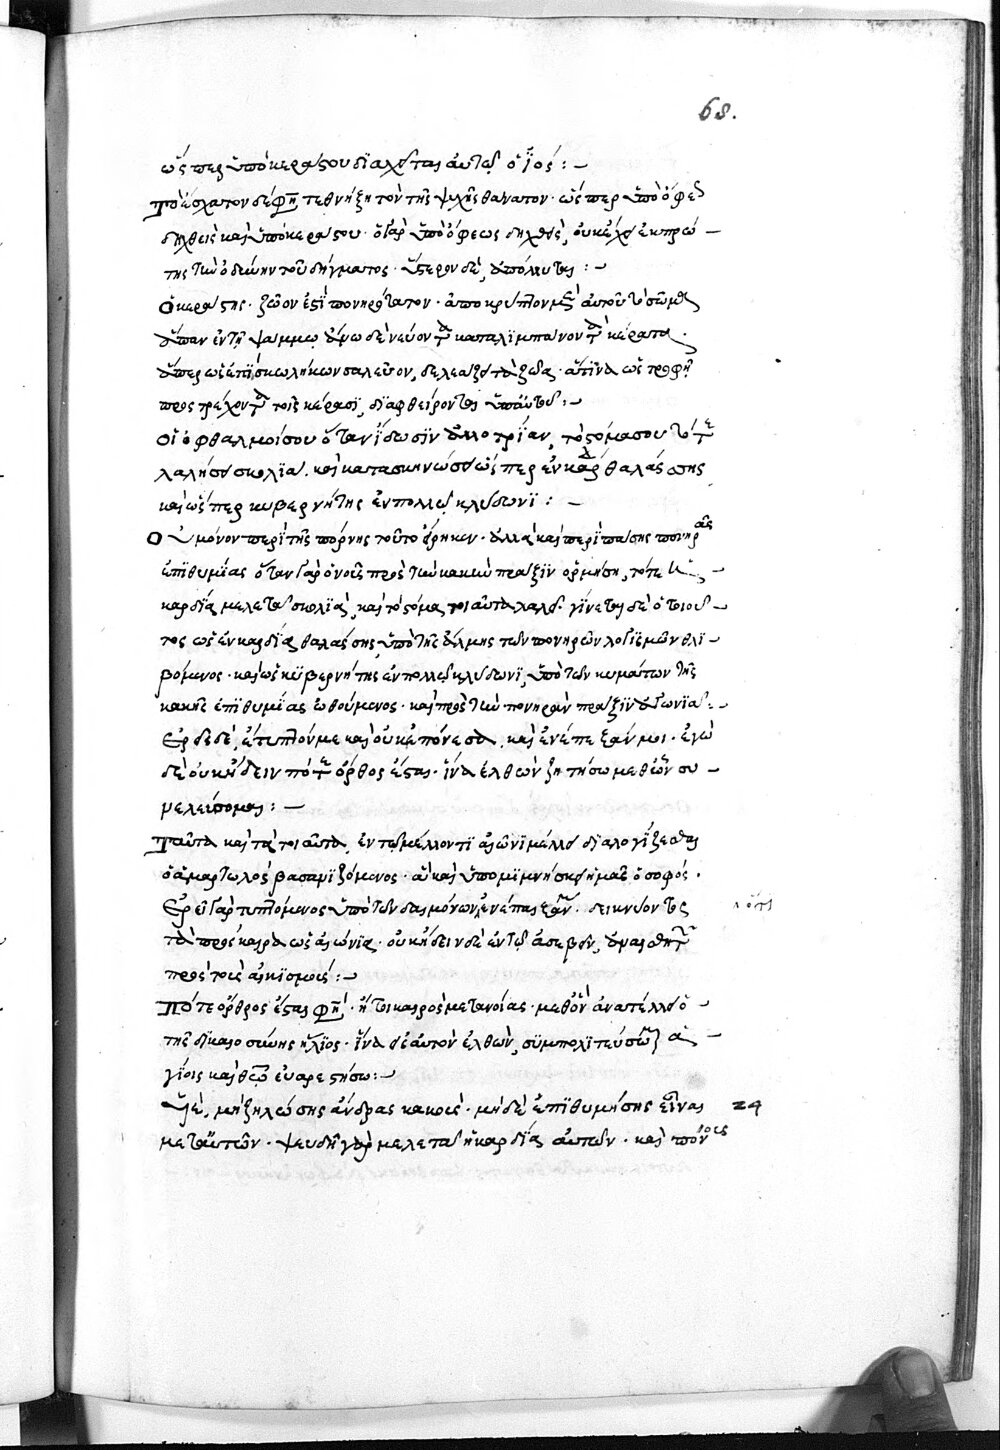 68.
ὥσπερ ὑπὸ κεράστου διαχεῖται αὐτῷ ὁ ἰός :–
Τὸ ἔσχατον δέ φησι τεθνήξη τὸν τῆς ψυχῆς θάνατον · ὥσπερ ὑπὸ ὄφεως
δηχθεὶς καὶ ὑπὸ κεράστου · ὁ γὰρ ὑπὸ ὄφεως δηχθεὶς, οὐκ ἔχει ἐκ πρώ –
της τὴν ὀδύνην τοῦ δήγματος · ὕστερον δὲ, ἀπόλλυται : –
Ὁ κεράστης · ζῶον ἐστὶ πονηρότατον · ἀποκρύπτον μὲν αὐτοῦ τὸ σῶμα
ἅπαν ἐν τῇ ψάμμῳ ἄνω δὲ νεῦον καταλιμπάνον τὰ κέρατα ·
ἅπερ ὡς ἐπὶ σκωλήκων σαλεῦον, δελεάζει τὰ ζῶα · ἅτινα ὡς τροφῇ
προστρέχοντα τοῖς κέρασι, διαφθείρονται ὑπ' αὐτοῦ :–
Οἱ ὀφθαλμοί σου ὅταν ἴδωσιν ἀλλοτρίαν, τὸ στόμα σου τότε
λαλήσει σκολιά · καὶ κατασκηνώσει ὥσπερ ἐν καρδίᾳ θαλάσσης
καὶ ὥσπερ κυβερνήτης ἐν πολλῷ κλύδωνι : –
Οὐ μόνον περὶ τῆς πόρνης τοῦτο εἴρηκεν · ἀλλὰ καὶ περὶ πάσης πονηρᾶς
ἐπιθυμίας ὅταν γὰρ ὁ νοῦς πρὸς τὴν κακὴν πρᾶξιν ὁρμήσῃ, τότε –
καρδία μελετᾷ σκολιὰ, καὶ τὸ στόμα τοιαῦτα λαλεῖ · γίνεται δὲ ὁ τοιοῦ –
τος ὡς ἐν καρδίᾳ θαλάσσης, ὑπὸ τῆς ἅλμης τῶν πονηρῶν λογισμῶν θλι –
βόμενος · καὶ ὡς κυβερνήτης ἐν πολλῷ κλύδωνι, ὑπὸ τῶν κυμάτων τῆς
κακῆς ἐπιθυμίας ὠθούμενος · καὶ πρὸς τὴν πονηρὰν πρᾶξιν ἀγωνιᾷ :–
Ἐρεῖ δὲ, ἔτυπτόν με καὶ οὐκ ἐπόνεσα, καὶ ἐνέπαιξάν μοι · ἐγὼ
δὲ οὐκ ᾔδειν πότε ὄρθρος ἔσται · ἵνα ἐλθὼν ζητήσω μεθ' ὧν συ –
μελεύσομαι : –
Ταῦτα καὶ τὰ τοιαῦτα, ἐν τῷ μέλλοντι αἰῶνι μέλλει διαλογίζεσθαι
ὁ ἁμαρτωλὸς βασανιζόμενος · ἃ καὶ ὑπομιμνήσκει ἡμᾶς ὁ σοφός ·
Ἐρεῖ γὰρ τυπτόμενος ὑπὸ τῶν δαιμόνων, ἐνέπαιξαν · δεικνύοντες
τὰ πρόσκαιρα ὡς αἰώνια · οὐκ ᾔδειν δὲ ἐν τῷ ἀσεβεῖν, ἀναισθητῶν
πρὸς τοὺς αἰκισμούς :–
Πότε ὄρθρος ἔσται φησί · ἤτοι καιρὸς μετανοίας · μεθ' ὃν ἀνατέλλει ὁ –
τῆς δικαιοσύνης ἥλιος · ἵνα εἰς αὐτὸν ἐλθὼν, συμπολιτεύσωμαι ἁ –
γίοις καὶ θεῷ εὐαρεστήσω :–
Υἱὲ, μὴ ζηλώσῃς ἄνδρας κακούς · μηδὲ ἐπιθυμήσῃς εἶναι 24
μετ' αὐτῶν · ψευδῆ γὰρ μελετᾷ ἡ καρδία αὐτῶν · καὶ πόνους